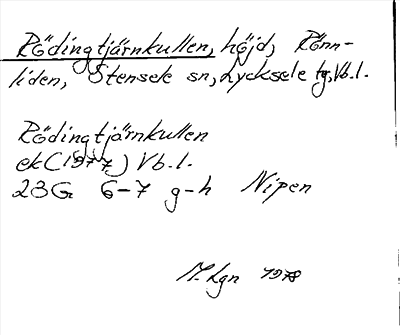 Rödingtjärnkullen, höjd, Rönn-
liden, Stensele sn, Lycksele tg, Vb.l.
Rödingtjärnkullen
ek (1977) Vb.l.
23G 6-7 g-h Nipen
M.Lgn 1978